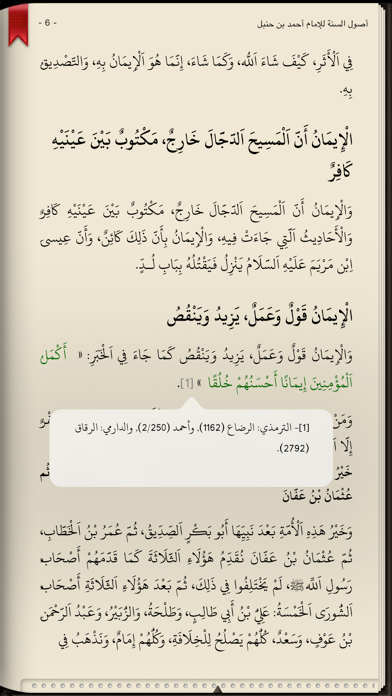 أصول السنة للإمام أحمد بن حنبل
- 6 -
فِي اَلْأَثَرِ، كَيْفَ شَاءَ اَللَّه، وَكَمَا شَاءَ، إِنَّمَا هُوَ اَلْإِيمَانُ بِهِ، وَالتَّصْدِيقُ
بِهِ.
الْإِيمَانُ أَنَّ اَلْمَسِيحَ اَلدَّجَّالَ خَارِجٌ، مَكْتُوبٌ بَيْنَ عَيْنَيْهِ
كَافِرٌ
وَالْإِيمَانُ أَنَّ اَلْمَسِيحَ اَلدَّجَّالَ خَارِجٌ، مَكْتُوبٌ بَيْنَ عَيْنَيْهِ كَافِرٌ
وَالْأَحَادِيثُ اَلَّتِي جَاءَتْ فِيهِ، وَالْإِيمَانُ بِأَنَّ ذَلِكَ كَائِنٌ، وَأَنَّ عِيسَى
اِبْنَ مَرْيَمَ عَلَيْهِ اَلسَّلَامُ يَنْزِلُ فَيَقْتُلُهُ بِبَابِ لُـدٍّ.
الْإِيمَانُ قَوْلٌ وَعَمَلٌ، يَزِيدُ وَيَنْقُصُ
وَالْإِيمَانُ قَوْلٌ وَعَمَلٌ، يَزِيدُ وَيَنْقُصُ كَمَا جَاءَ فِي اَلْخَبَرِ: « أَكْمَلُ
اَلْمُؤْمِنِينَ إِيمَانًا أَحْسَنُهُمْ خُلُقًا » [1].
[1]- الترمذي: الرضاع (1162), وأحمد (2/250), والدارمي: الرقاق
(2792).
وَمَنْ
إِلَّا
خَيْرُ
ثُمَّ
عُثْمَانُ بْنُ عَفَّانَ
وَخَيْرُ هَذِهِ اَلْأُمَّةِ بَعْدَ نَبِيِّهَا أَبُو بَكْرٍ اَلصِّدِّيقُ، ثُمَّ عُمَرُ بْنُ اَلْخَطَّابِ،
ثُمَّ عُثْمَانُ بْنُ عَفَّانَ نُقَدِّمُ هَؤُلَاءِ اَلثَّلَاثَةَ كَمَا قَدَّمَهُمْ أَصْحَابُ
رَسُولِ اَللَّهِ ﷺ، لَمْ يَخْتَلِفُوا فِي ذَلِكَ، ثُمَّ بَعْدَ هَؤُلَاءِ اَلثَّلَاثَةِ أَصْحَابُ
اَلشُّورَى اَلْخَمْسَةُ: عَلِيُّ بْنُ أَبِي طَالِبٍ، وَطَلْحَةُ، وَالزُّبَيْرُ، وَعَبْدُ اَلرَّحْمَنِ
بْنُ عَوْفٍ، وَسَعْدٌ، كُلُّهُمْ يَصْلُحُ لِلْخِلَافَةِ، وَكُلُّهُمْ إِمَامٌ، وَنَذْهَبُ فِي